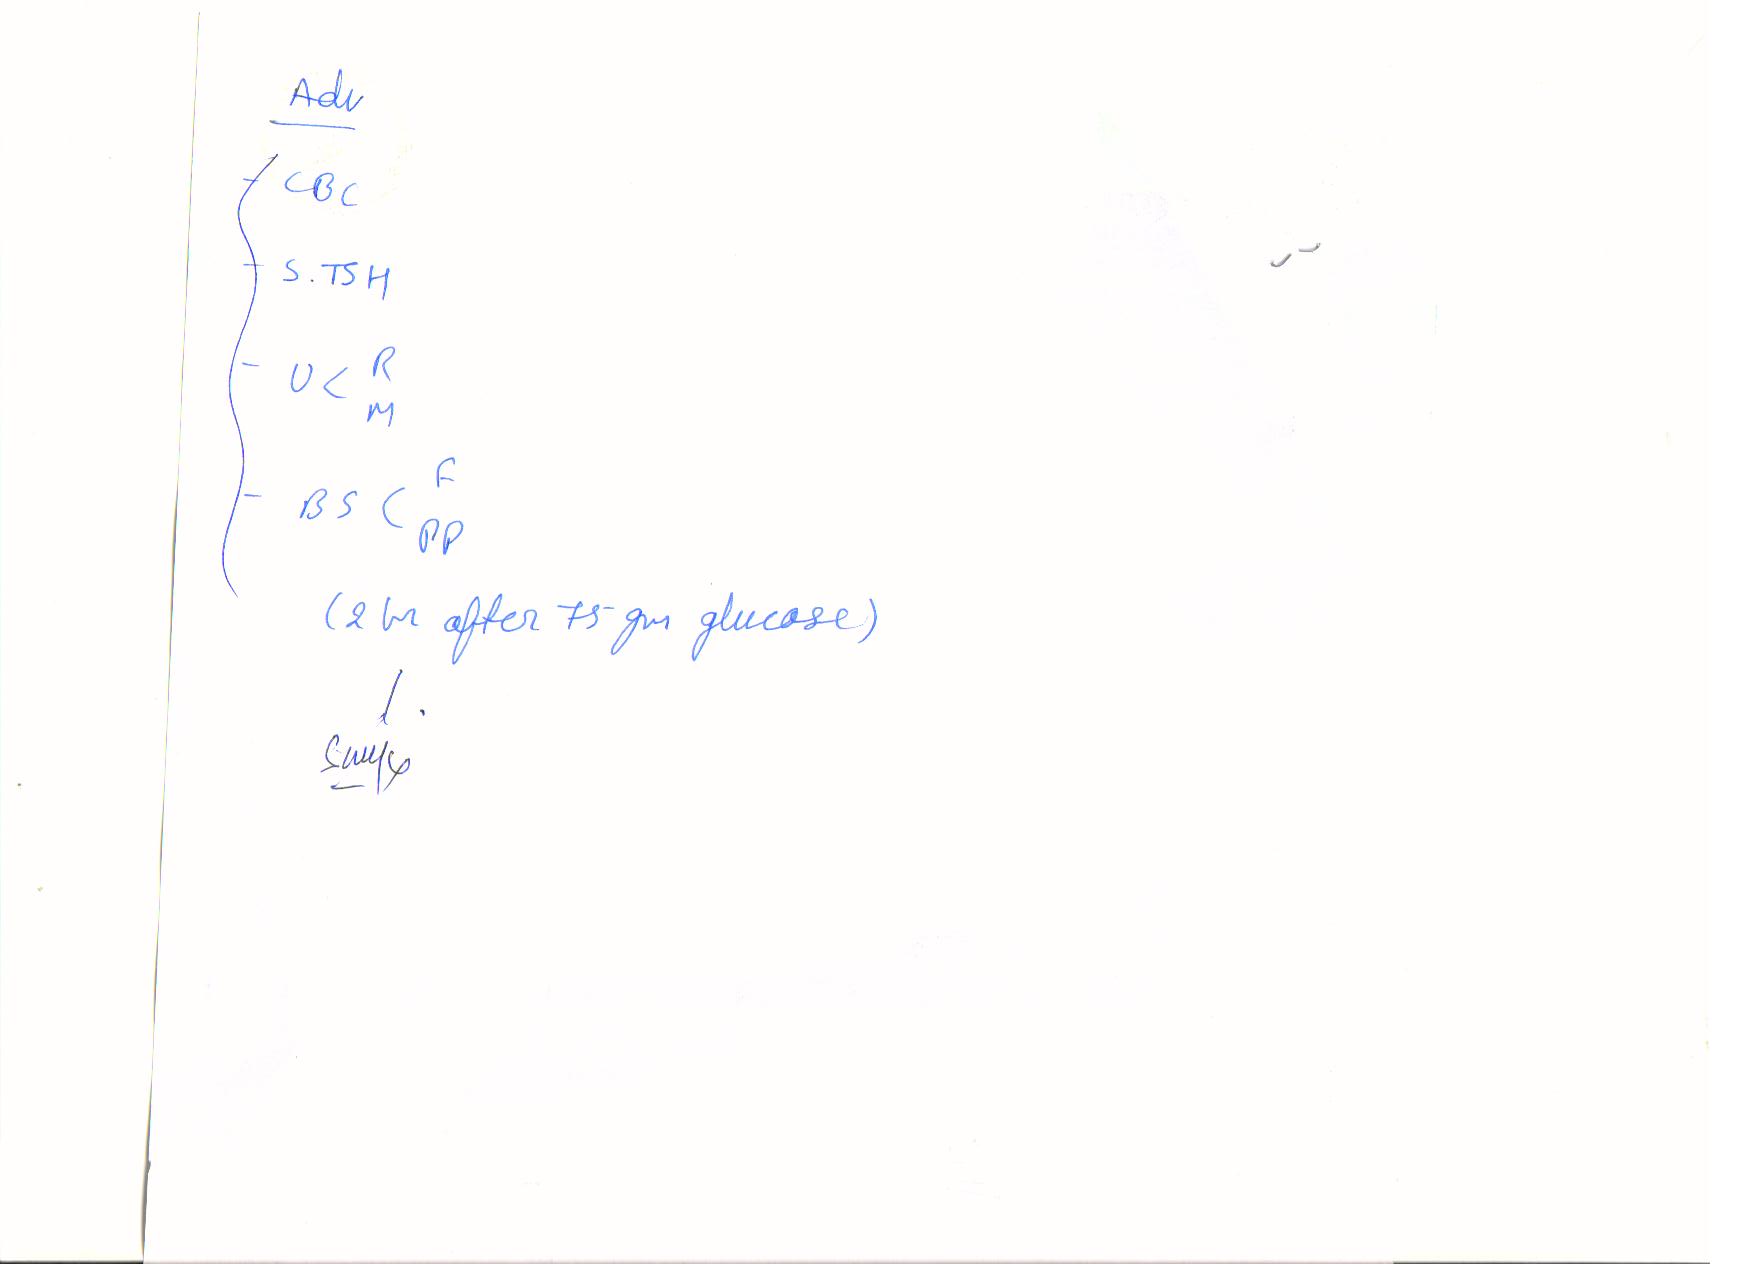 Adv
- CBC
- S.TSH
- U < R
M
- BS < F
PP
(2 hr after 75 gm glucose)